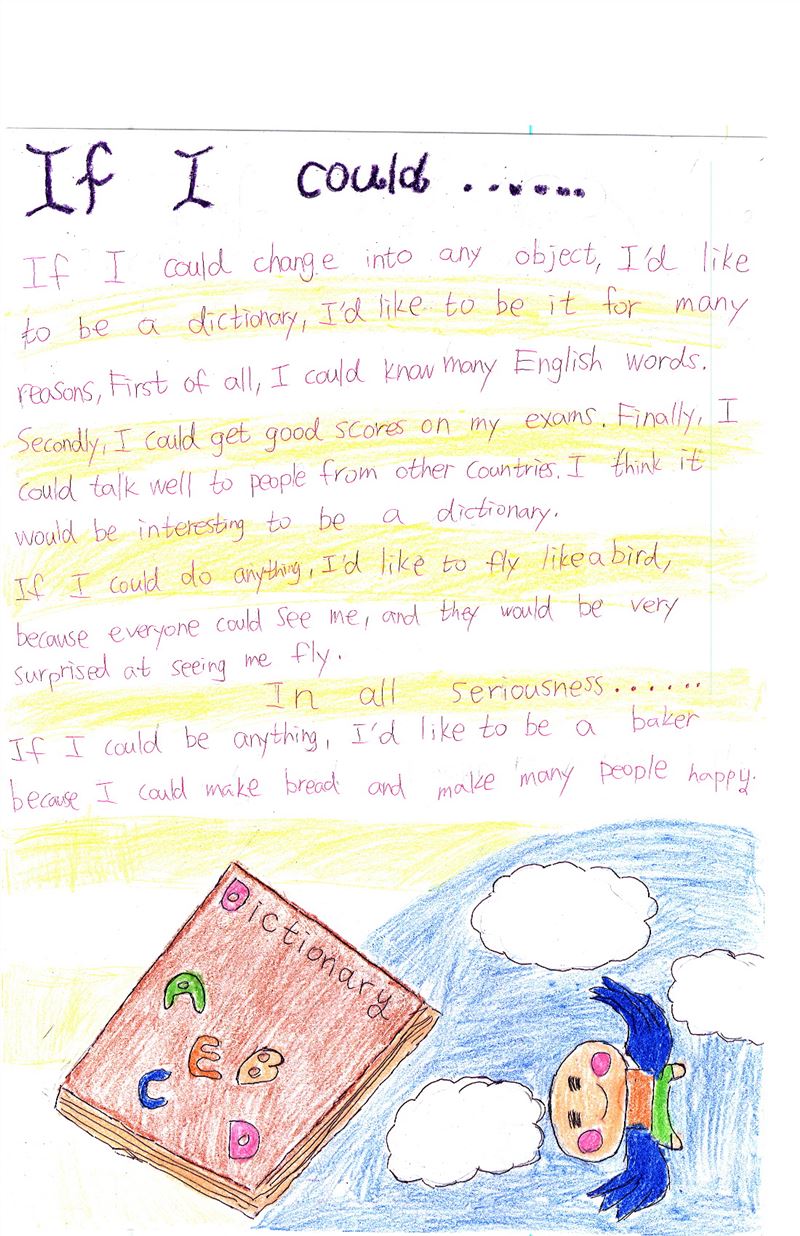 If I could .......
If I could change into any object, I'd like
to be a dictionary, I'd like to be it for many
reasons, First of all, I could know many English words.
Secondly, I could get good scores on my exams. Finally, I
could talk well to people from other countries. I think it
would be interesting to be a dictionary.
If I could do anything, I'd like to fly like a bird,
because everyone could see me, and they would be very
surprised at seeing me fly.
In all seriousness.......
If I could be anything, I'd like to be a baker
because I could make bread and make many people happy.
Dictionary
A
E B
C
D